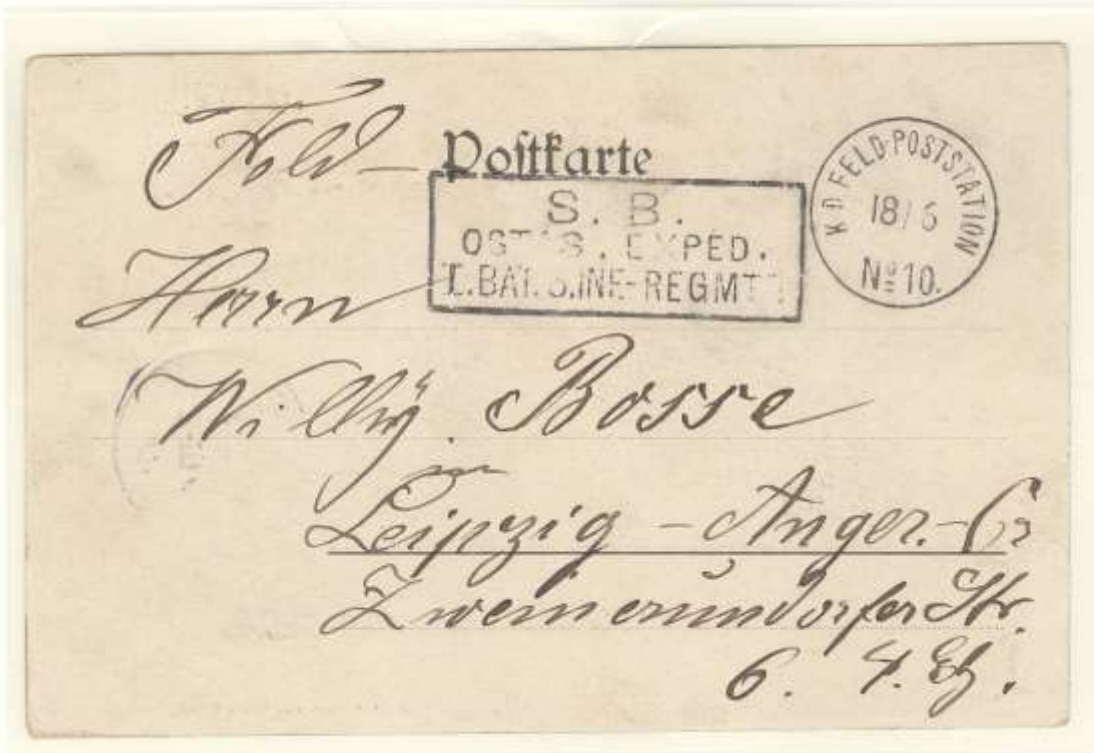 Feld- Postkarte
S. B.
OSTAS. EXPED.
BAT. INF-REGMT
K D FELD-POSTSTATION
18/6
Nº 10.
Herrn
Willy Bosse
in
Leipzig - Anger.-Cr
Zweinaundorfer Str.
6. 4. Etg.